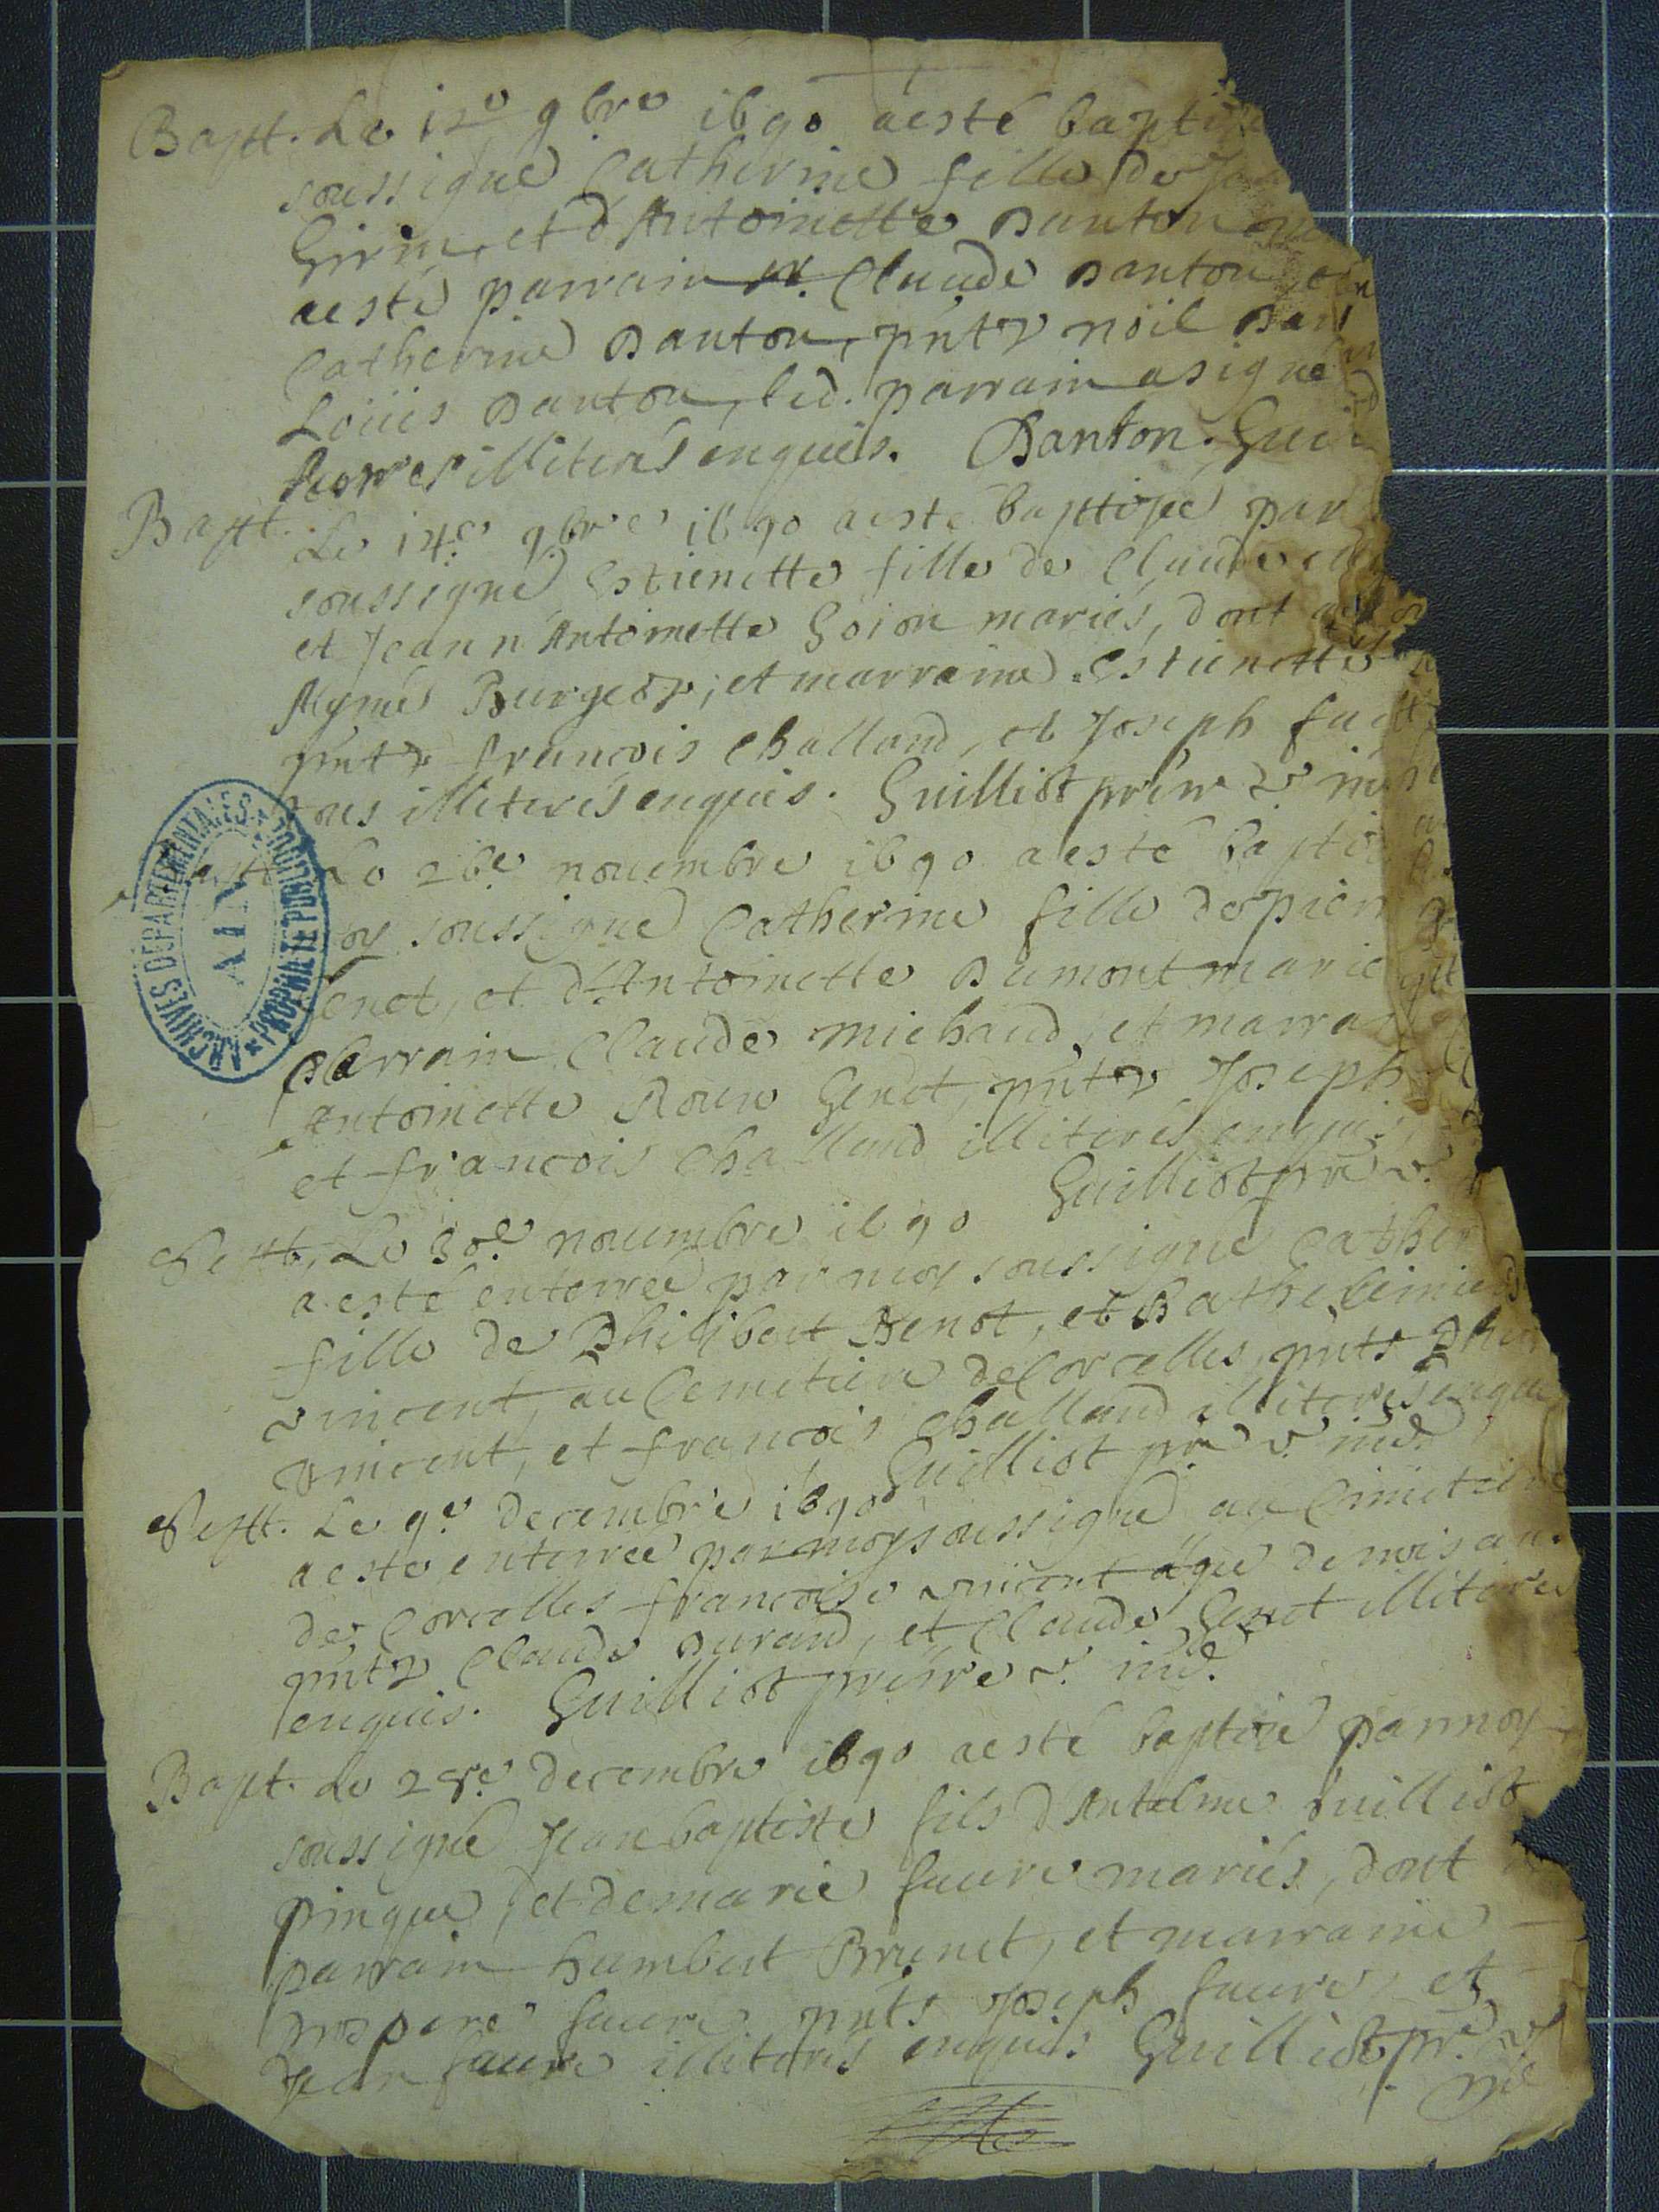 Bapt. Le 12e 9bre 1690 a esté baptisé
soussigné Catherine fille de
Girin, et d'Antoinette Danton
a esté parrain Claude Danton, et
Catherine Danton, pnts noïl Dan
Loüis Danton, led. parrain a signé
illiterés enquis. Danton. Gui
Bapt. Le 14e 9bre 1690 a esté baptisée par
soussigné Estienette fille de Claude
et Jeann'Antoinette Goion mariés, dont
Aymé Burgeos, et marraine Estienette
pnts françois Challand, et Joseph
tous illiterés enquis. Guilliot prêtre v.
Le 26e nouembre 1690 a esté baptis
soussigné Catherine fille de pier
enet, et d'Antoinette Dumont marie
parrain Claude Michaud, et marra
Antoinette Roux Genet, pnts Joseph
et françois Challand illiterés enquis,
Guilliot pre v.
Sept. Le 30e nouembre 1690
a esté enterrée par moy soussigné Cather
fille de Philibert Benot, et
vincent, au Cemetiere de Corcelles, pnts
vincent, et françois Challand illiterés enquis
Guilliot pre v. ind.
Sept. Le 9e decembre 1690
a esté enterrée par moy soussigné au Cimetiere
de Corcelles françoise vincent agée de
pnts Claude Durand, et Claude Genet illiteres
enquis. Guilliot prêtre v. ind.
Bapt. Le decembre 1690 a esté baptisé par moy
soussigné Jean baptiste fils d'Antelme Guilliot
pingue, et de marie faure mariés, dont
parrain humbert Brunet, et marraine
prospere faure pnts Joseph faure, et
Jean faure illiterés enquis Guilliot pre v.
ind
ARCHIVES DÉPARTEMENTALES
PROPRIÉTÉ PUBLIQUE
AIN